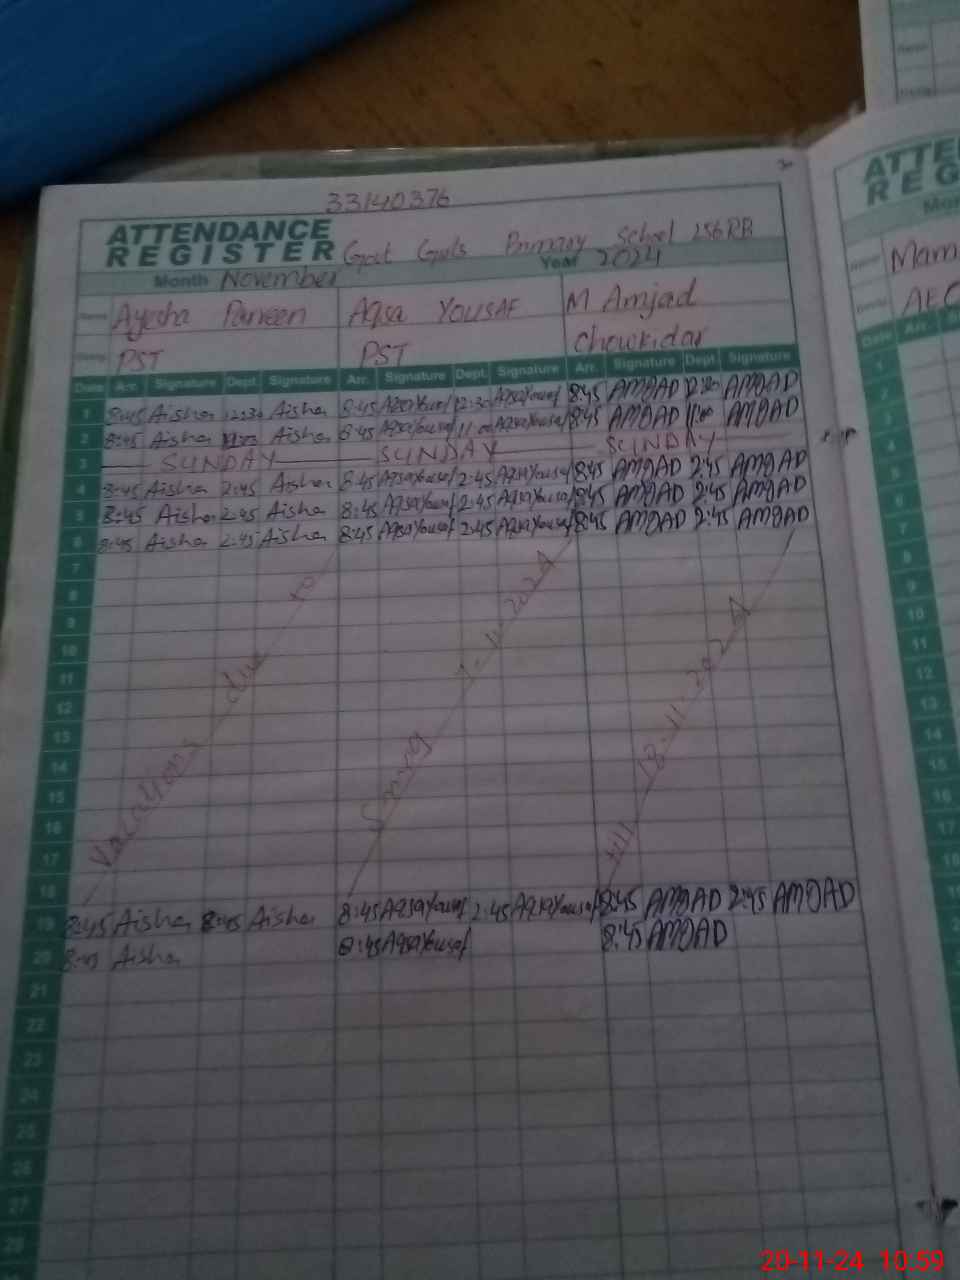 33140376
ATTENDANCE
REGISTER Govt Girls Primary School 256RB
Month November Year 2024
Name Ayesha Parveen Aqsa YOUSAF M Amjad
PST PST Chowkidar
Date Arr. Signature Dept. Signature Arr. Signature Dept. Signature Arr. Signature Dept. Signature
1 8:45 Aisha 12:30 Aisha 8:45 AqsaYousaf 12:30 AqsaYousaf 8:45 AMJAD 12:30 AMJAD
2 8:45 Aisha 11:00 Aisha 8:45 AqsaYousaf 11:00 AqsaYousaf 8:45 AMJAD 11:00 AMJAD
3 SUNDAY SUNDAY SUNDAY
4 8:45 Aisha 2:45 Aisha 8:45 AqsaYousaf 2:45 AqsaYousaf 8:45 AMJAD 2:45 AMJAD
5 8:45 Aisha 2:45 Aisha 8:45 AqsaYousaf 2:45 AqsaYousaf 8:45 AMJAD 2:45 AMJAD
6 8:45 Aisha 2:45 Aisha 8:45 AqsaYousaf 2:45 AqsaYousaf 8:45 AMJAD 2:45 AMJAD
7
8
9
10
11
12
13
14
15
16
17
18
Vacations due to
Smog 7-11-2024
till 18-11-2024
19 8:45 Aisha 8:45 Aisha 8:45 AqsaYousaf 2:45 AqsaYousaf 8:45 AMJAD 2:45 AMJAD
20 8:45 Aisha 8:45 AqsaYousaf 8:45 AMJAD
21
22
23
24
25
26
27
28
ATTE
REG
Mon
Name Mam
AEO
Date Arr.
1
2
3
4
5
6
7
8
9
10
11
12
13
14
15
16
17
20-11-24 10:59